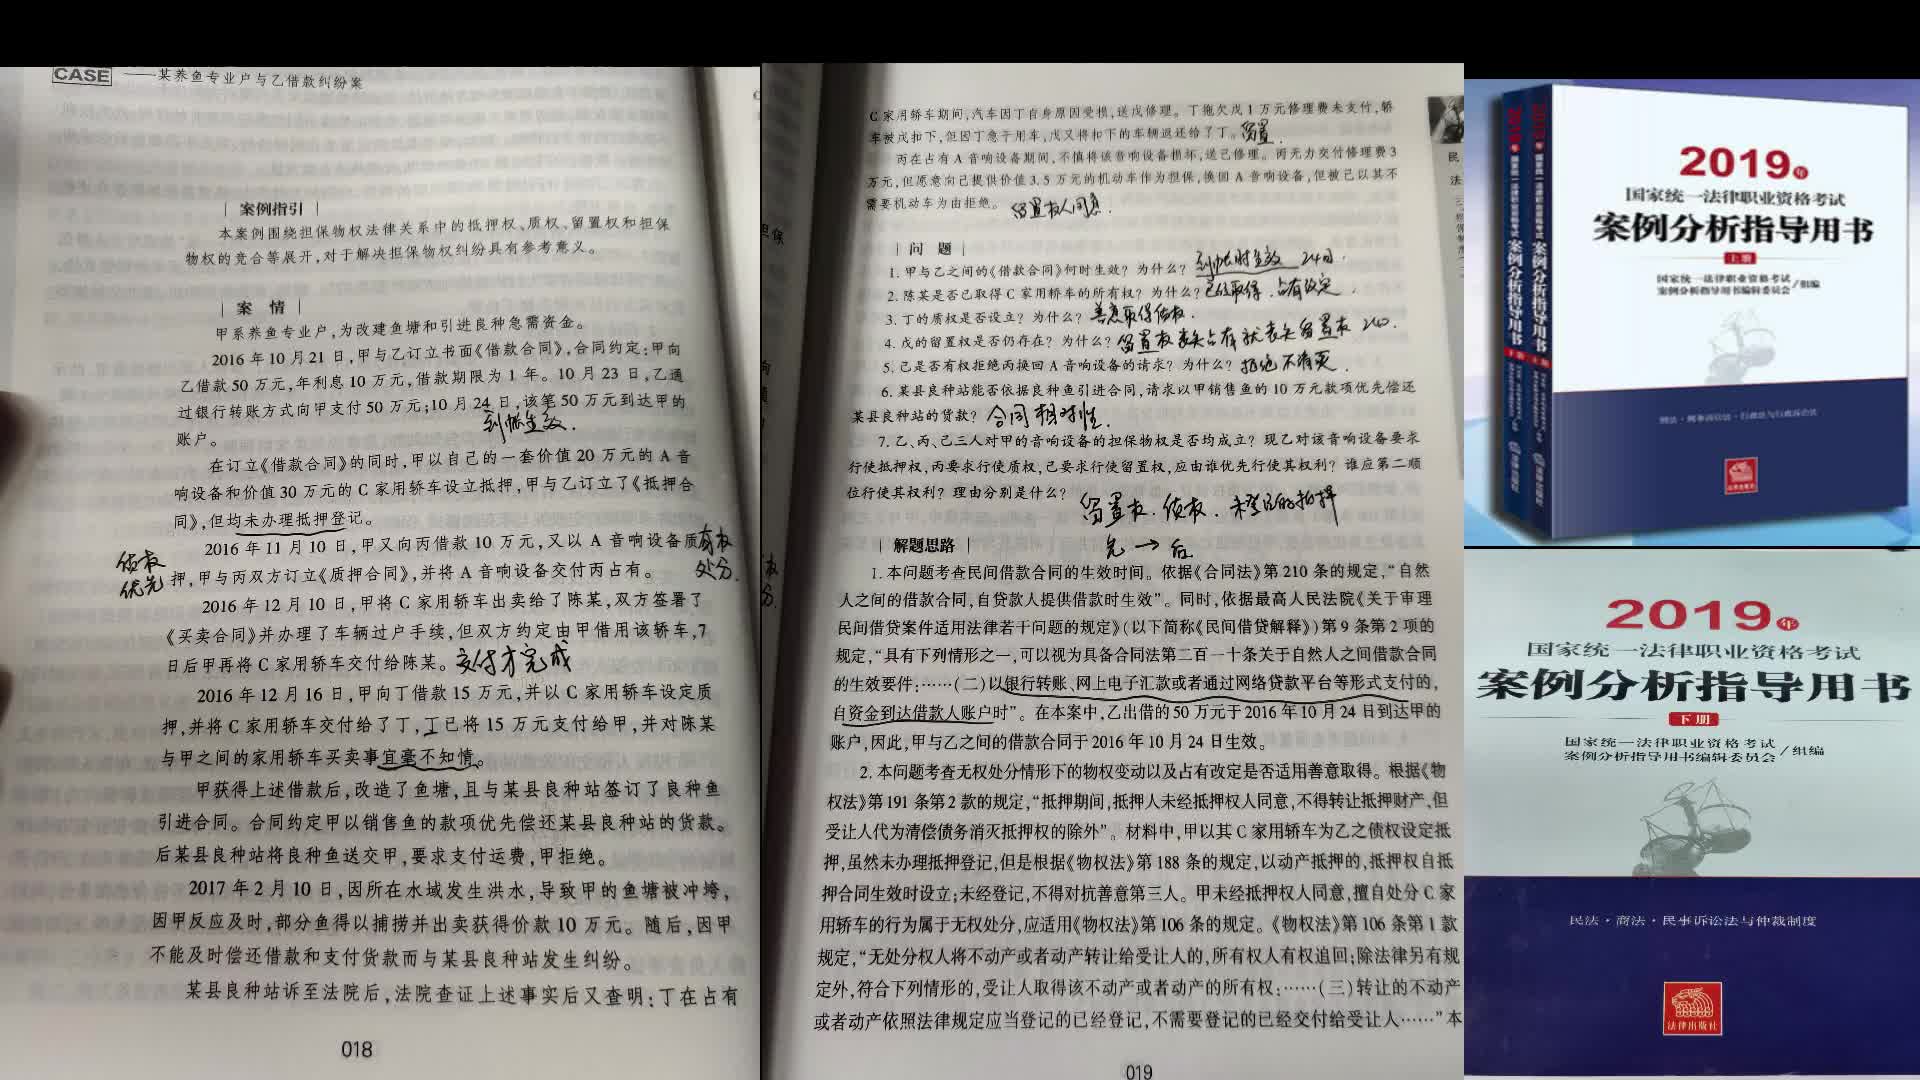 CASE ——某养鱼专业户与乙借款纠纷案
| 案例指引 |
本案例围绕担保物权法律关系中的抵押权、质权、留置权和担保
物权的竞合等展开,对于解决担保物权纠纷具有参考意义。
| 案 情 |
甲系养鱼专业户,为改建鱼塘和引进良种急需资金。
2016 年 10 月 21 日,甲与乙订立书面《借款合同》,合同约定:甲向
乙借款 50 万元,年利息 10 万元,借款期限为 1 年。10 月 23 日,乙通
过银行转账方式向甲支付 50 万元;10 月 24 日,该笔 50 万元到达甲的
账户。
到帐生效.
在订立《借款合同》的同时,甲以自己的一套价值 20 万元的 A 音
响设备和价值 30 万元的 C 家用轿车设立抵押,甲与乙订立了《抵押合
同》,但均未办理抵押登记。
2016 年 11 月 10 日,甲又向丙借款 10 万元,又以 A 音响设备质
押,甲与丙双方订立《质押合同》,并将 A 音响设备交付丙占有。
债权
优先
有权
处分.
2016 年 12 月 10 日,甲将 C 家用轿车出卖给了陈某,双方签署了
《买卖合同》并办理了车辆过户手续,但双方约定由甲借用该轿车,7
日后甲再将 C 家用轿车交付给陈某。交付才完成
2016 年 12 月 16 日,甲向丁借款 15 万元,并以 C 家用轿车设定质
押,并将 C 家用轿车交付给了丁,丁已将 15 万元支付给甲,并对陈某
与甲之间的家用轿车买卖事宜毫不知情。
甲获得上述借款后,改造了鱼塘,且与某县良种站签订了良种鱼
引进合同。合同约定甲以销售鱼的款项优先偿还某县良种站的货款。
后某县良种站将良种鱼送交甲,要求支付运费,甲拒绝。
2017 年 2 月 10 日,因所在水域发生洪水,导致甲的鱼塘被冲垮,
因甲反应及时,部分鱼得以捕捞并出卖获得价款 10 万元。随后,因甲
不能及时偿还借款和支付货款而与某县良种站发生纠纷。
某县良种站诉至法院后,法院查证上述事实后又查明:丁在占有
018
C 家用轿车期间,汽车因丁自身原因受损,送戊修理。丁拖欠戊 1 万元修理费未支付,轿
车被戊扣下,但因丁急于用车,戊又将扣下的车辆返还给了丁。留置.
丙在占有 A 音响设备期间,不慎将该音响设备损坏,送己修理。丙无力交付修理费 3
万元,但愿意向己提供价值 3.5 万元的机动车作为担保,换回 A 音响设备,但被己以其不
需要机动车为由拒绝。 留置权人同意.
| 问 题 |
1. 甲与乙之间的《借款合同》何时生效? 为什么? 到帐时生效 24日.
2. 陈某是否已取得 C 家用轿车的所有权? 为什么? 已经取得.占有改定.
3. 丁的质权是否设立? 为什么? 善意取得债权.
4. 戊的留置权是否仍存在? 为什么? 留置权丧失占有就丧失留置权 240.
5. 己是否有权拒绝丙换回 A 音响设备的请求? 为什么? 拒绝
6. 某县良种站能否依据良种鱼引进合同,请求以甲销售鱼的 10 万元款项优先偿还
某县良种站的货款? 合同相对性.
7. 乙、丙、己三人对甲的音响设备的担保物权是否均成立? 现乙对该音响设备要求
行使抵押权,丙要求行使质权,己要求行使留置权,应由谁优先行使其权利? 谁应第二顺
位行使其权利? 理由分别是什么? 留置权.债权.未登记的抵押
先 → 后
| 解题思路 |
1. 本问题考查民间借款合同的生效时间。依据《合同法》第 210 条的规定,“自然
人之间的借款合同,自贷款人提供借款时生效”。同时,依据最高人民法院《关于审理
民间借贷案件适用法律若干问题的规定》(以下简称《民间借贷解释》)第 9 条第 2 项的
规定,“具有下列情形之一,可以视为具备合同法第二百一十条关于自然人之间借款合同
的生效要件:……(二)以银行转账、网上电子汇款或者通过网络贷款平台等形式支付的,
自资金到达借款人账户时”。在本案中,乙出借的 50 万元于 2016 年 10 月 24 日到达甲的
账户,因此,甲与乙之间的借款合同于 2016 年 10 月 24 日生效。
2. 本问题考查无权处分情形下的物权变动以及占有改定是否适用善意取得。根据《物
权法》第 191 条第 2 款的规定,“抵押期间,抵押人未经抵押权人同意,不得转让抵押财产,但
受让人代为清偿债务消灭抵押权的除外”。材料中,甲以其 C 家用轿车为乙之债权设定抵
押,虽然未办理抵押登记,但是根据《物权法》第 188 条的规定,以动产抵押的,抵押权自抵
押合同生效时设立;未经登记,不得对抗善意第三人。甲未经抵押权人同意,擅自处分 C 家
用轿车的行为属于无权处分,应适用《物权法》第 106 条的规定。《物权法》第 106 条第 1 款
规定,“无处分权人将不动产或者动产转让给受让人的,所有权人有权追回;除法律另有规
定外,符合下列情形的,受让人取得该不动产或者动产的所有权:……(三)转让的不动产
或者动产依照法律规定应当登记的已经登记,不需要登记的已经交付给受让人……”本
019
2019年
国家统一法律职业资格考试
案例分析指导用书
上册
国家统一法律职业资格考试
案例分析指导用书编辑委员会/组编
刑法·刑事诉讼法·行政法与行政诉讼法
法律出版社
2019年
国家统一法律职业资格考试
案例分析指导用书
下册
国家统一法律职业资格考试
案例分析指导用书编辑委员会/组编
民法·商法·民事诉讼法与仲裁制度
法律出版社